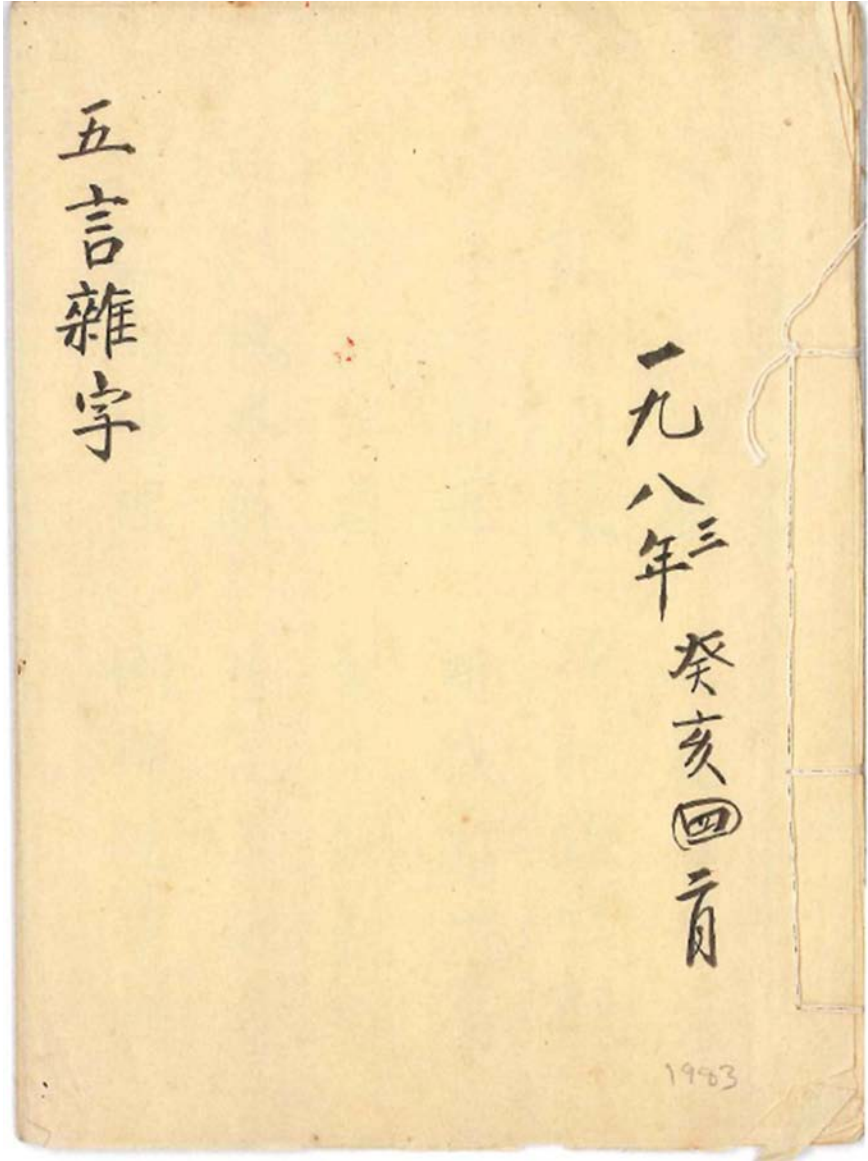 一九八三年 癸亥 四 二月
五言雜字
1983